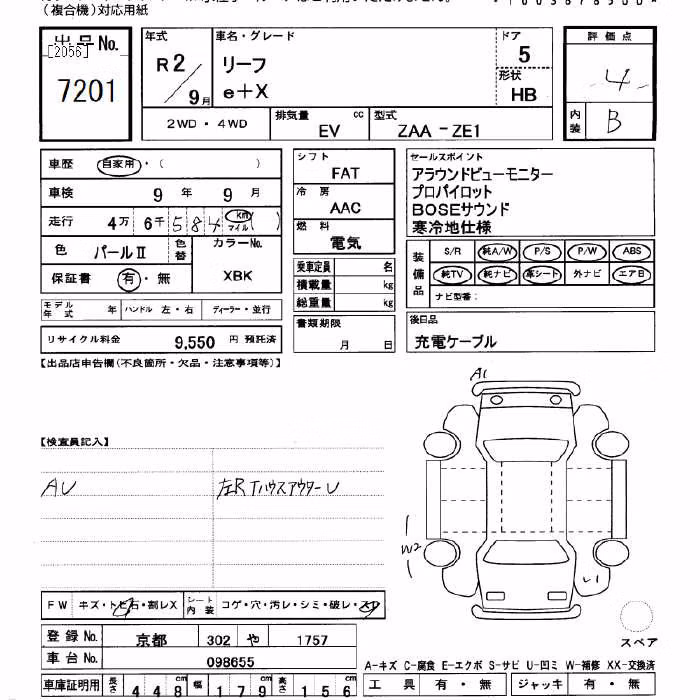 (複合機)対応用紙
出品No.
[2056]
7201
年式
R2/9月
車名・グレード
リーフ
e+X
ドア
5
形状
HB
評価点
4
内装
B
2WD・4WD
排気量 cc
EV
型式
ZAA-ZE1
車歴 自家用・( )
車検 9年 9月
走行 4万6千584 km マイル ( )
色 パールⅡ
色替
カラーNo.
XBK
保証書 有・無
モデル年式 年 ハンドル 左・右 ディーラー・並行
リサイクル料金 9,550円 預託済
シフト
FAT
冷房
AAC
燃料
電気
乗車定員 名
積載量 kg
総重量 kg
書類期限
月 日
セールスポイント
アラウンドビューモニター
プロパイロット
BOSEサウンド
寒冷地仕様
装備品
S/R 純A/W P/S P/W ABS
純TV 純ナビ 革シート 外ナビ エアB
ナビ型番:
後日品
充電ケーブル
【出品店申告欄(不良箇所・欠品・注意事項等)】
【検査員記入】
AU
左RTハウスアウターU
A1
W2
U1
FW キズ・トビ石・割レX
シート内装 コゲ・穴・汚レ・シミ・破レ・スレ
登録No. 京都 302 や 1757
車台No. 098655
スペア
A-キズ C-腐食 E-エクボ S-サビ U-凹ミ W-補修 XX-交換済
車庫証明用 長さ 448cm 幅 179cm 高さ 156cm
工具 有・無 ジャッキ 有・無